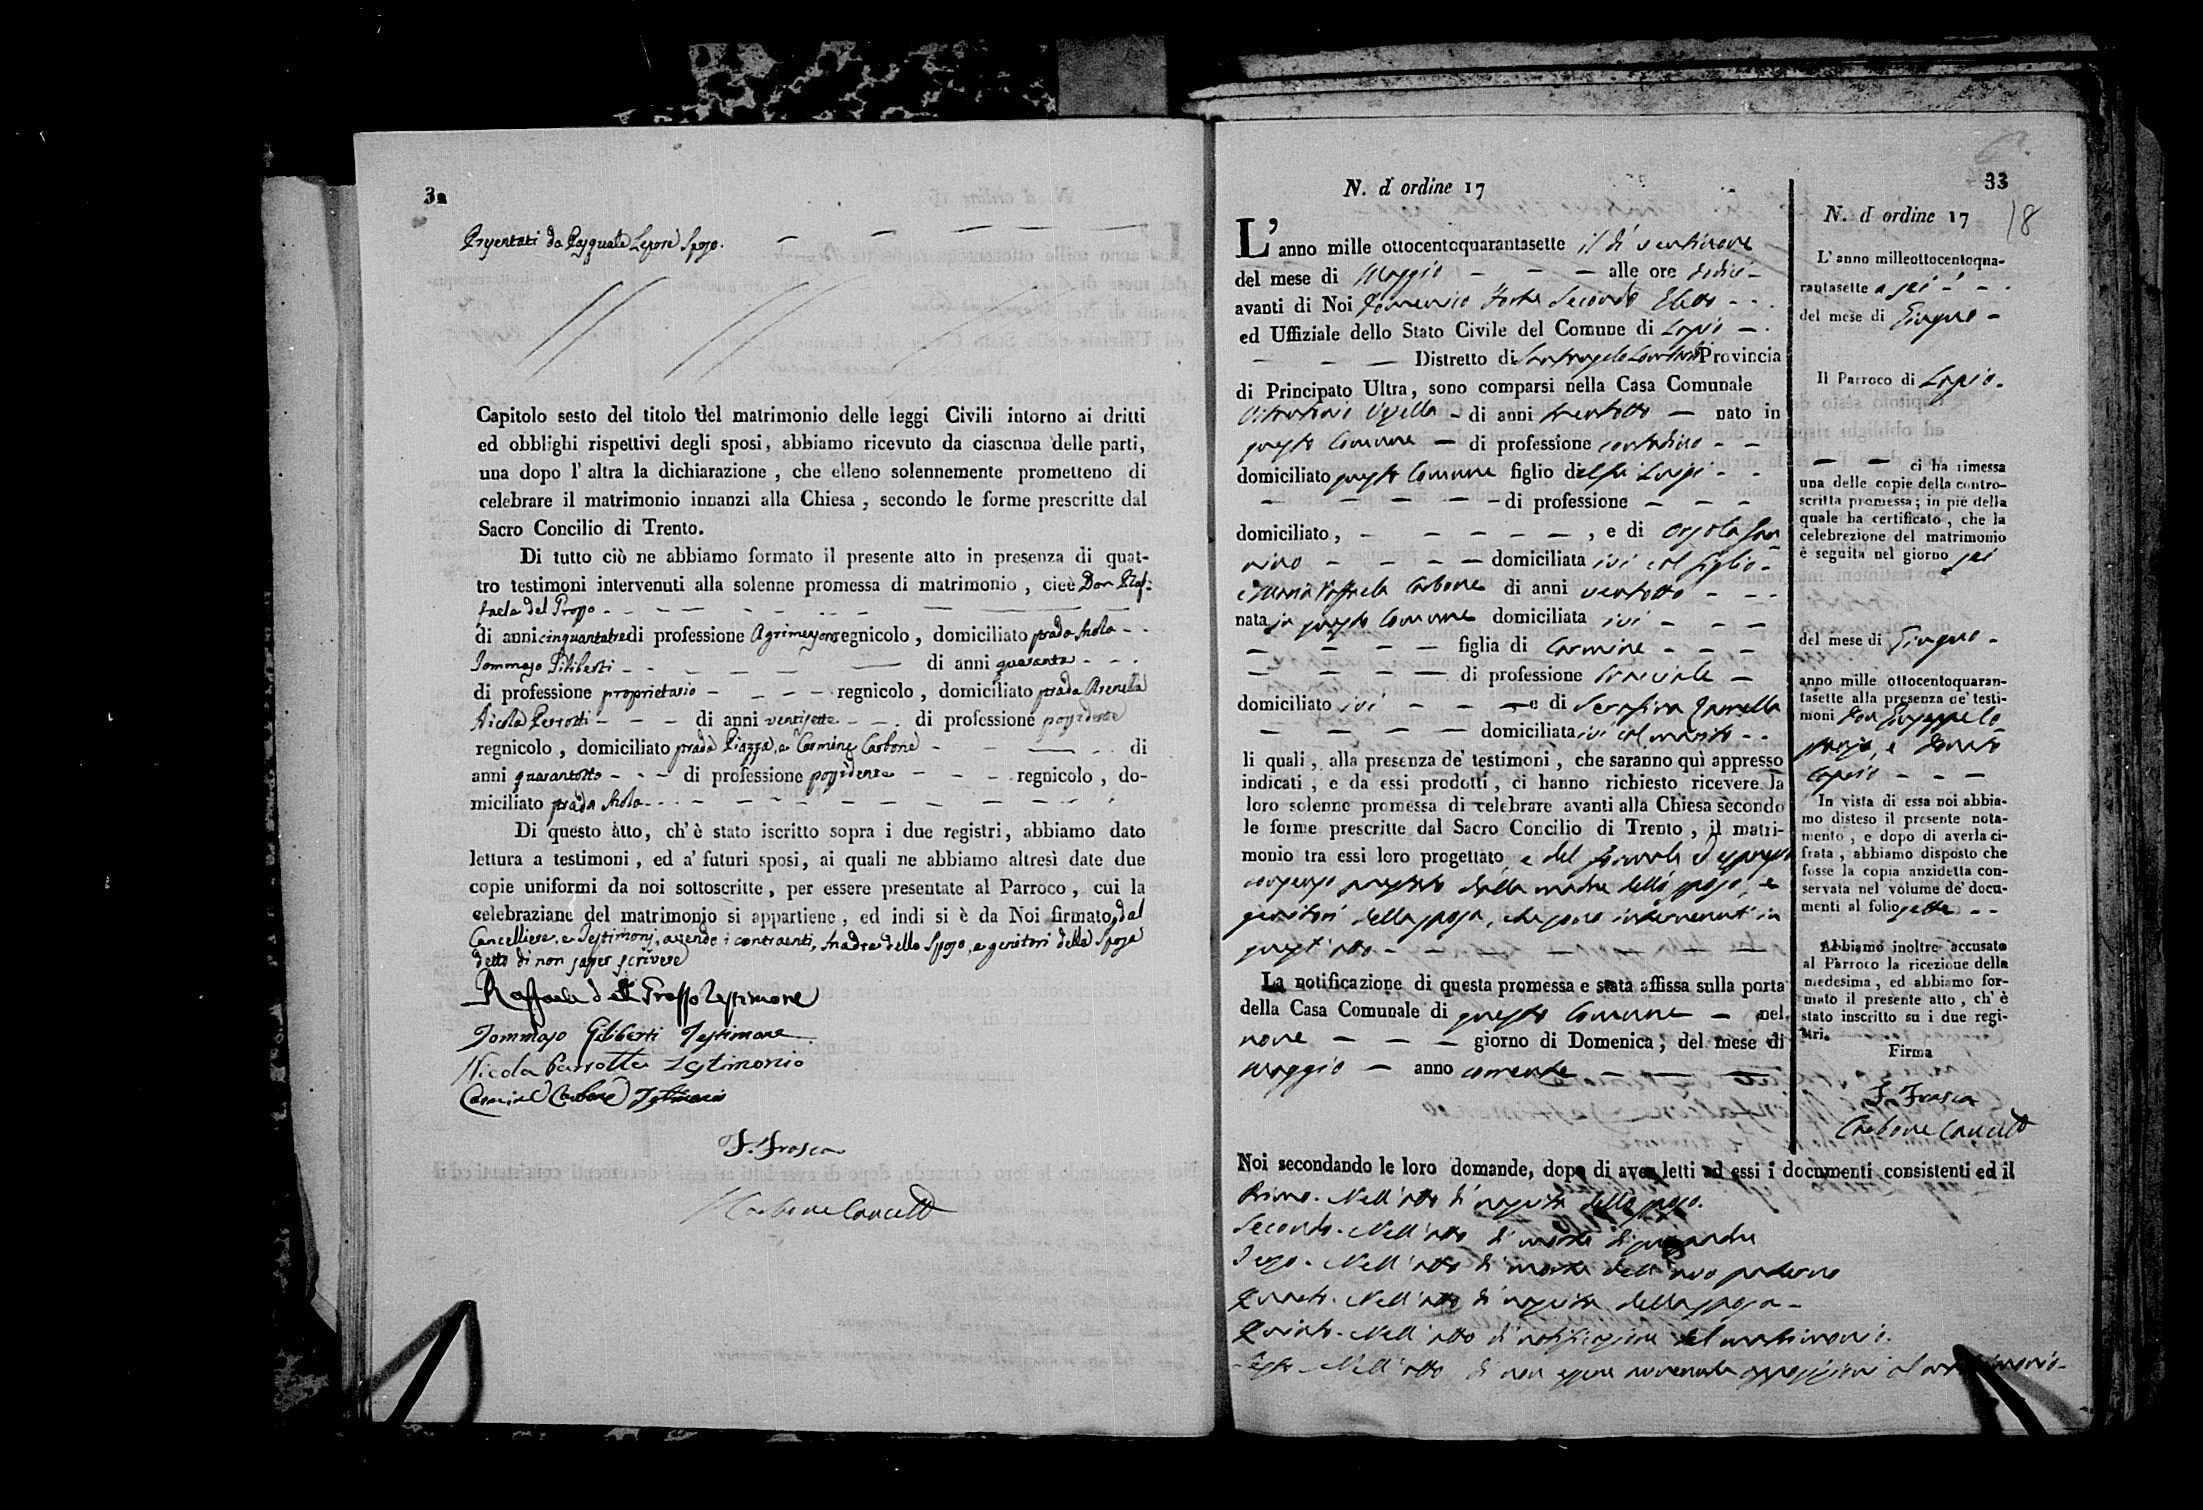 32
Presentati da Pasquale Lepore Sposo.
Capitolo sesto del titolo del matrimonio delle leggi Civili intorno ai dritti
ed obblighi rispettivi degli sposi, abbiamo ricevuto da ciascuna delle parti,
una dopo l' altra la dichiarazione, che elleno solennemente prometteno di
celebrare il matrimonio innanzi alla Chiesa, secondo le forme prescritte dal
Sacro Concilio di Trento.
Di tutto ciò ne abbiamo formato il presente atto in presenza di quat-
tro testimoni intervenuti alla solenne promessa di matrimonio, cioè Don Raf-
faele del
di anni cinquantatre di professione Agrimensore regnicolo, domiciliato strada
Tommaso Giliberti di anni quaranta
di professione proprietario regnicolo, domiciliato strada Arenella
Nicola Perrotti di anni ventisette di professione possidente
regnicolo, domiciliato strada Piazza, e Carmine Carbone di
anni quarantotto di professione possidente regnicolo, do-
miciliato strada
Di questo atto, ch' è stato iscritto sopra i due registri, abbiamo dato
lettura a testimoni, ed a' futuri sposi, ai quali ne abbiamo altresì date due
copie uniformi da noi sottoscritte, per essere presentate al Parroco, cui la
celebraziane del matrimonio si appartiene, ed indi si è da Noi firmato, dal
Cancelliere, e Testimonj, avendo i contraenti, Madre dello Sposo, e genitori della Sposa
detto di non saper scrivere
Raffaele del Testimone
Tommaso Giliberti Testimone
Nicola Perrotti Testimonio
Carmine Carbone Testimonio
F. Frosca
Carbone Canc
N. d' ordine 17
L' anno mille ottocentoquarantasette il dì ventinove
del mese di Maggio alle ore dodici
avanti di Noi Domenico Secondo Eletto
ed Uffiziale dello Stato Civile del Comune di Lapio
Distretto di Santangelo Lombardi Provincia
di Principato Ultra, sono comparsi nella Casa Comunale
di anni trentotto nato in
questo Comune di professione contadino
domiciliato questo Comune figlio del fu Luigi
di professione
domiciliato, , e di Orsola
domiciliata ivi col figlio
e Maria Raffaela Carbone di anni ventotto
nata in questo Comune domiciliata ivi
figlia di Carmine
di professione
domiciliato ivi e di Serafina
domiciliata ivi col marito
li quali, alla presenza de' testimoni, che saranno quì appresso
indicati, e da essi prodotti, ci hanno richiesto ricevere la
loro solenne promessa di celebrare avanti alla Chiesa secondo
le forme prescritte dal Sacro Concilio di Trento, il matri-
monio tra essi loro progettato e del formale ed espresso
consenso prestato dalla madre dello sposo, e
genitori della sposa, che sono intervenuti in
quest' atto
La notificazione di questa promessa e stata affissa sulla porta
della Casa Comunale di questo Comune nel
nove giorno di Domenica, del mese di
Maggio anno corrente
33
18
N. d' ordine 17
L' anno milleottocentoqua-
rantasette a sei
del mese di Giugno
Il Parroco di Lapio.
ci ha rimessa
una delle copie della contro-
scritta promessa; in piè della
quale ha certificato, che la
celebrezione del matrimonio
è seguita nel giorno sei
del mese di Giugno
anno mille ottocentoquaran-
tasette alla presenza de' testi-
moni Don Giuseppe
e Donato
In vista di essa noi abbia-
mo disteso il presente nota-
mento, e dopo di averla ci-
frata, abbiamo disposto che
fosse la copia anzidetta con-
servata nel volume de' docu-
menti al folio sette
Abbiamo inoltre accusato
al Parroco la ricezione della
medesima, ed abbiamo for-
mato il presente atto, ch' è
stato inscritto su i due regi-
stri.
Firma
F. Frosca
Carbone Canc
Noi secondando le loro domande, dopo di aver letti ad essi i documenti consistenti ed il
Primo. Nell' atto di nascita dello sposo.
Secondo. Nell' atto di morte di suo padre
Terzo. Nell' atto di morte dell' avo paterno
Quarto. Nell' atto di nascita della sposa
Quinto. Nell' atto di notificazione del matrimonio.
Sesto. Nell' atto di non essere avvenuta opposizione al matrimonio.